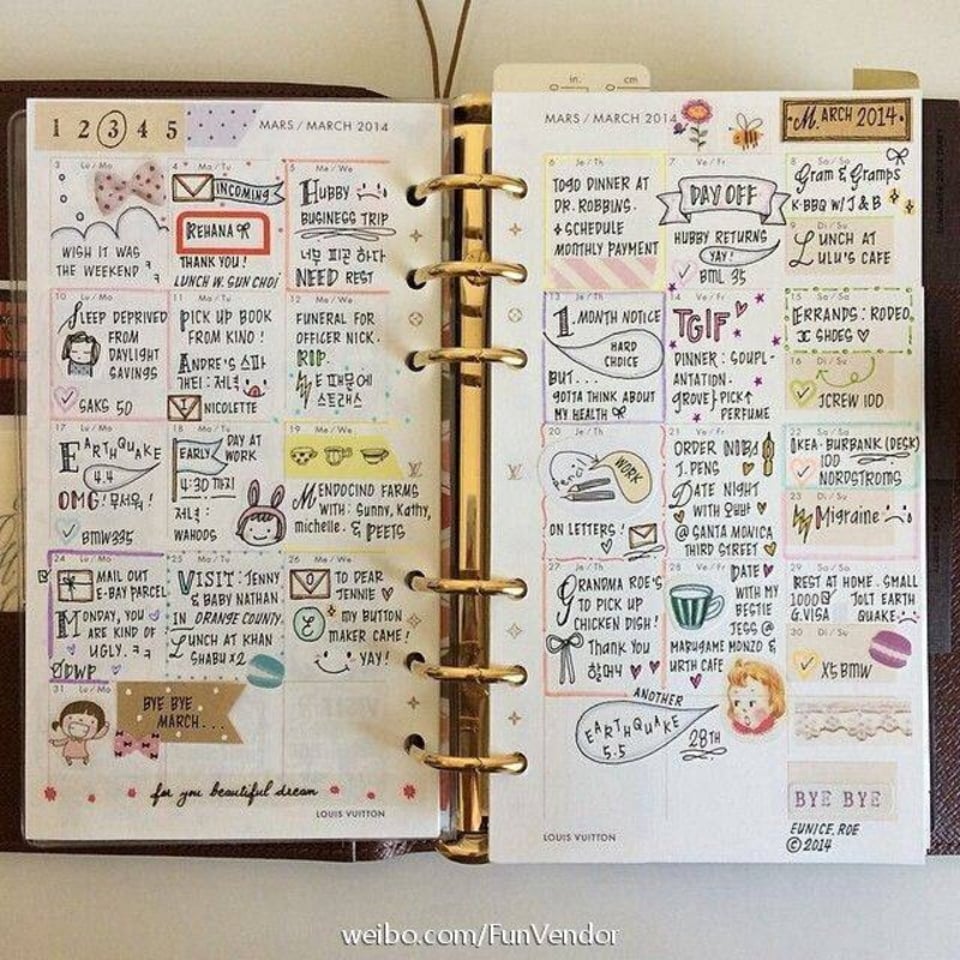 1 2 3 4 5
MARS / MARCH 2014
3 Lu / Mo
WISH IT WAS
THE WEEKEND ㅋㅋ
4 Ma / Tu
INCOMING
REHANA
THANK YOU!
LUNCH W. SUN CHOI
5 Me / We
HUBBY
BUSINESS TRIP
너무 피곤 하다
NEED REST
10 Lu / Mo
SLEEP DEPRIVED
FROM
DAYLIGHT
SAVINGS
SAKS 50
11 Ma / Tu
PICK UP BOOK
FROM KINO!
ANDRE'S 스파
게티 : 저녁
NICOLETTE
12 Me / We
FUNERAL FOR
OFFICER NICK.
RIP.
E 때문에
스트래스
17 Lu / Mo
EARTHQUAKE
4.4
OMG! 무서워!
BMW335
18 Ma / Tu
EARLY
DAY AT
WORK
4:30 까지
저녁:
WAHOOS
19 Me / We
MENDOCINO FARMS
WITH: Sunny, Kathy,
michelle. & PEETS
24 Lu / Mo
MAIL OUT
E-BAY PARCEL
MONDAY, YOU
ARE KIND OF
UGLY. ㅋㅋ
DDWP
25 Ma / Tu
VISIT: JENNY
& BABY NATHAN
IN ORANGE COUNTY.
LUNCH AT KHAN
SHABU X2
26 Me / We
TO DEAR
JENNIE
MY BUTTON
MAKER CAME!
YAY!
31 Lu / Mo
BYE BYE
MARCH...
for you beautiful dream
LOUIS VUITTON
in. cm
MARS / MARCH 2014
MARCH 2014.
6 Je / Th
TOGO DINNER AT
DR. ROBBINS.
+ SCHEDULE
MONTHLY PAYMENT
7 Ve / Fr
DAY OFF
HUBBY RETURNS
YAY!
BML 35
8 Sa / Sa
Gram & Gramps
K-BBQ W/ J & B
9 Di / Su
LUNCH AT
LULU'S CAFE
13 Je / Th
1. MONTH NOTICE
HARD
CHOICE
BUT...
GOTTA THINK ABOUT
MY HEALTH
14 Ve / Fr
TGIF
DINNER: SOUPL-
ANTATION.
GROVE} PICK↑
PERFUME
15 Sa / Sa
ERRANDS: RODEO,
SHOES
16 Di / Su
JCREW 100
20 Je / Th
Pencil
WORK
ON LETTERS!
21 Ve / Fr
ORDER
J. PENS
DATE NIGHT
WITH 오빠
@ SANTA MONICA
THIRD STREET
22 Sa / Sa
IKEA-BURBANK (DESK)
100
NORDSTROMS
23 Di / Su
Migraine
27 Je / Th
GRANDMA ROE'S
TO PICK UP
CHICKEN DISH!
Thank You
28 Ve / Fr
DATE
WITH MY
BESTIE
JESS @
MARUGAME MONZO &
URTH CAFE
29 Sa / Sa
REST AT HOME. SMALL
1000 JOLT EARTH
G.VISA QUAKE
30 Di / Su
X5 BMW
ANOTHER
EARTHQUAKE
5.5
28TH
BYE BYE
LOUIS VUITTON
EUNICE, ROE
© 2014
weibo.com/FunVendor